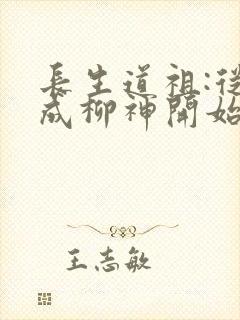 長生道祖:從
成柳神開始
王志敏